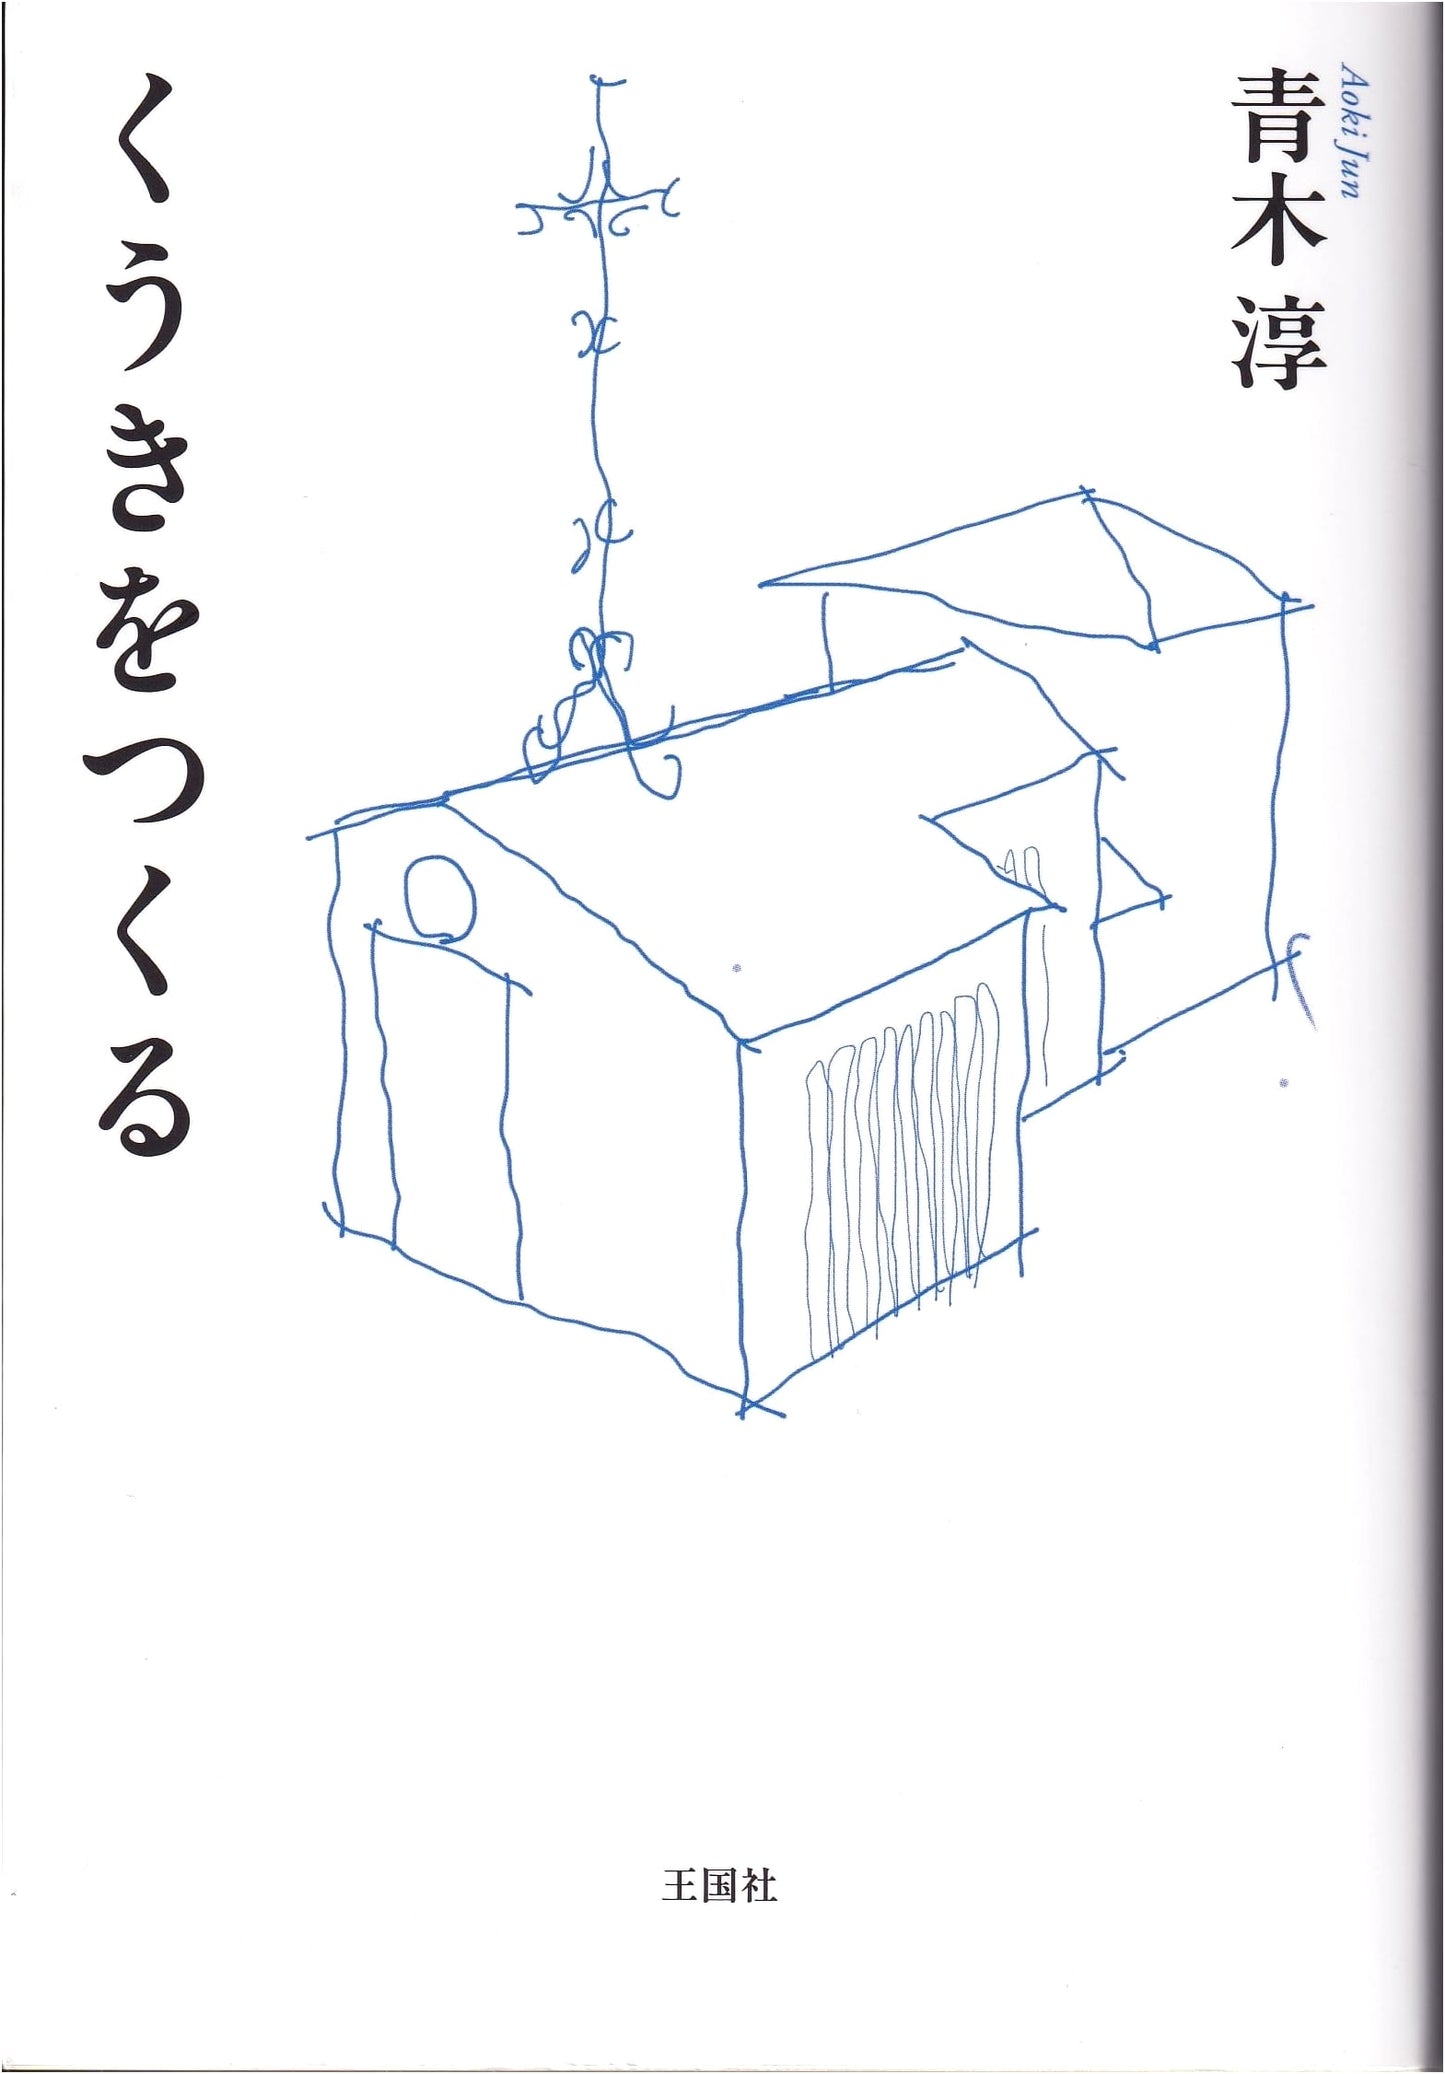 Aoki Jun
青木 淳
くうきをつくる
王国社